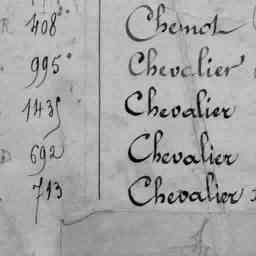 408° Chemot
995° Chevalier
1435 Chevalier
692 Chevalier
713 Chevalier